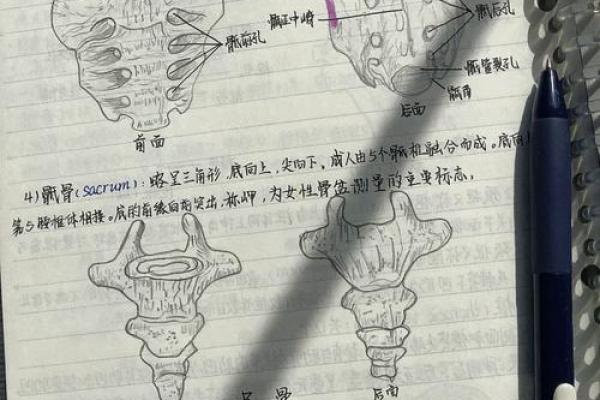 骶正中嵴
骶后孔
骶前孔
骶管裂孔
骶角
前面
后面
4) 骶骨(sacrum): 略呈三角形,底向上,尖向下,成人由5个骶椎融合而成。底向
第5腰椎体相接。底的前缘向前突出,称岬,为女性骨盆测量的重要标志。
骨
后面